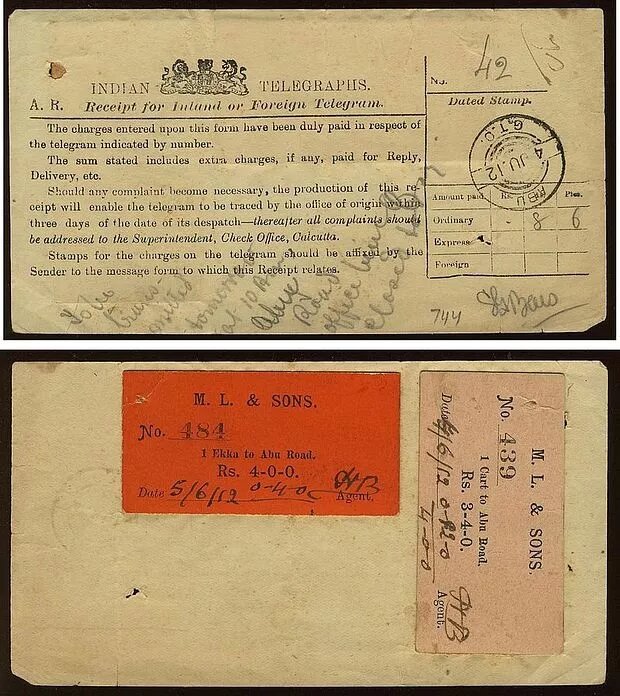 INDIAN TELEGRAPHS.
A. R. Receipt for Inland or Foreign Telegram.
The charges entered upon this form have been duly paid in respect of
the telegram indicated by number.
The sum stated includes extra charges, if any, paid for Reply,
Delivery, etc.
Should any complaint become necessary, the production of this re-
ceipt will enable the telegram to be traced by the office of origin within
three days of the date of its despatch—thereafter all complaints should
be addressed to the Superintendent, Check Office, Calcutta.
Stamps for the charges on the telegram should be affixed by the
Sender to the message form to which this Receipt relates.
To be
trans-
mitted
tomorrow
at 10
Abu
Road
office
closed
No. 42
Dated Stamp.
G.T.O.
4 JU 12
ABU
Amount paid Rs. Pies.
Ordinary 8 6
Express
Foreign
744
M. L. & SONS.
No. 484
1 Ekka to Abu Road.
Rs. 4-0-0.
0-4-0
Date 5/6/12 HB Agent.
M. L. & SONS.
No. 439
1 Cart to Abu Road.
Rs. 3-4-0.
Date 4/6/12 0-12-0 HB Agent.
4-0-0